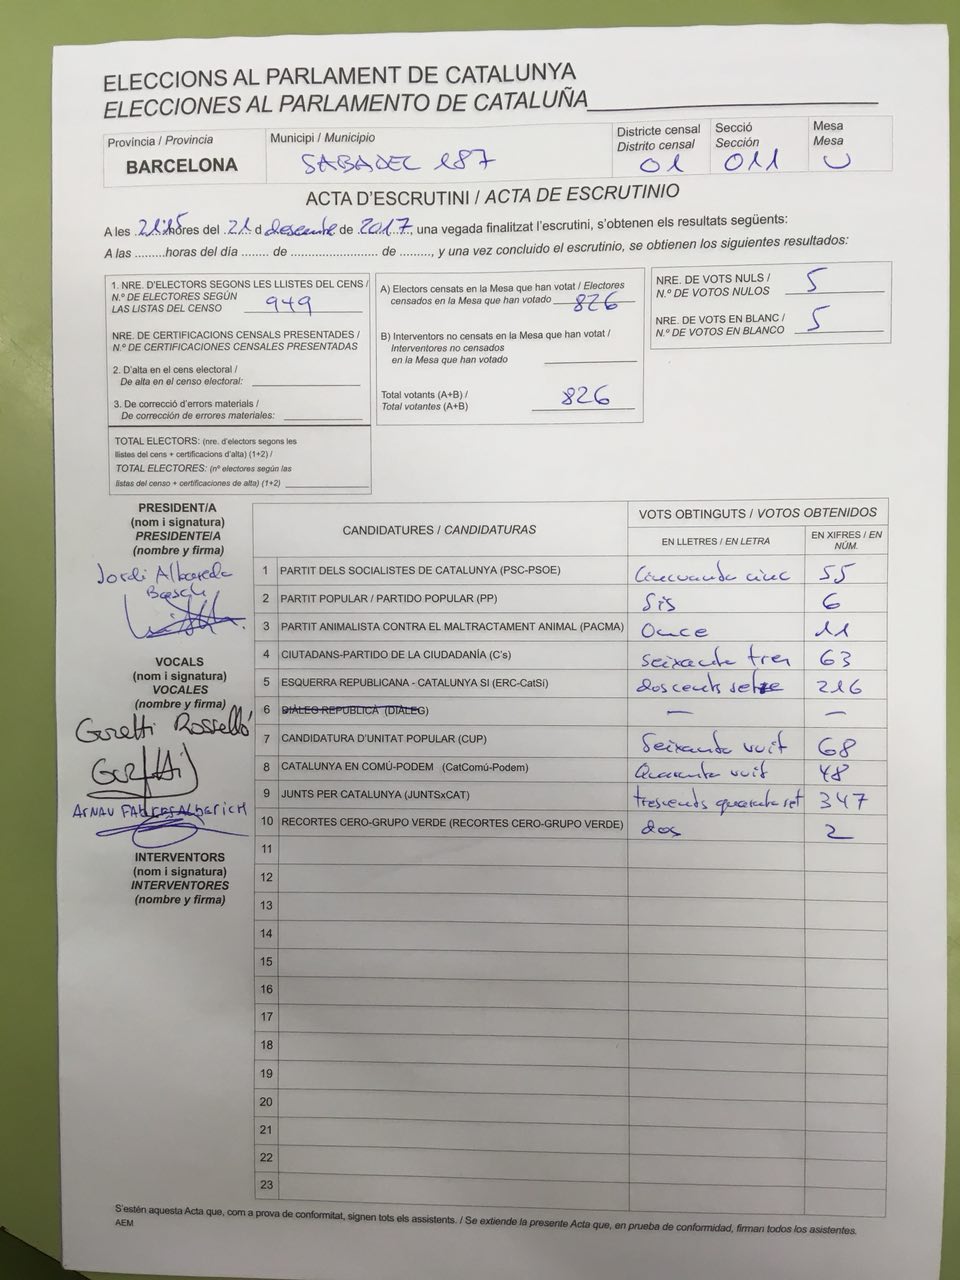 ELECCIONS AL PARLAMENT DE CATALUNYA
ELECCIONES AL PARLAMENTO DE CATALUÑA
Província / Provincia
BARCELONA
Municipi / Municipio
SABADEL 187
Districte censal
Distrito censal
01
Secció
Sección
011
Mesa
Mesa
U
ACTA D'ESCRUTINI / ACTA DE ESCRUTINIO
A les 21:15 hores del 21 d desembre de 2017, una vegada finalitzat l'escrutini, s'obtenen els resultats següents:
A las .........horas del día ........ de ........................ de ........., y una vez concluido el escrutinio, se obtienen los siguientes resultados:
1. NRE. D'ELECTORS SEGONS LES LLISTES DEL CENS /
N.º DE ELECTORES SEGÚN
LAS LISTAS DEL CENSO 949
NRE. DE CERTIFICACIONS CENSALS PRESENTADES /
N.º DE CERTIFICACIONES CENSALES PRESENTADAS
2. D'alta en el cens electoral /
De alta en el censo electoral:
3. De correcció d'errors materials /
De corrección de errores materiales:
TOTAL ELECTORS: (nre. d'electors segons les
llistes del cens + certificacions d'alta) (1+2) /
TOTAL ELECTORES: (nº electores según las
listas del censo + certificaciones de alta) (1+2)
A) Electors censats en la Mesa que han votat / Electores
censados en la Mesa que han votado 826
B) Interventors no censats en la Mesa que han votat /
Interventores no censados
en la Mesa que han votado
Total votants (A+B) /
Total votantes (A+B) 826
NRE. DE VOTS NULS /
N.º DE VOTOS NULOS 5
NRE. DE VOTS EN BLANC /
N.º DE VOTOS EN BLANCO 5
PRESIDENT/A
(nom i signatura)
PRESIDENTE/A
(nombre y firma)
Jordi Albareda
Bosch
VOCALS
(nom i signatura)
VOCALES
(nombre y firma)
Goretti Rosselló
Goretti
ARNAU FABREGAS Alberich
INTERVENTORS
(nom i signatura)
INTERVENTORES
(nombre y firma)
CANDIDATURES / CANDIDATURAS
VOTS OBTINGUTS / VOTOS OBTENIDOS
EN LLETRES / EN LETRA
EN XIFRES / EN NÚM.
1 PARTIT DELS SOCIALISTES DE CATALUNYA (PSC-PSOE) Cincuanta cinc 55
2 PARTIT POPULAR / PARTIDO POPULAR (PP) Sis 6
3 PARTIT ANIMALISTA CONTRA EL MALTRACTAMENT ANIMAL (PACMA) Once 11
4 CIUTADANS-PARTIDO DE LA CIUDADANÍA (C's) seixanta tres 63
5 ESQUERRA REPUBLICANA - CATALUNYA SI (ERC-CatSí) doscents setze 216
6 DIÀLEG REPUBLICÀ (DIÀLEG) — —
7 CANDIDATURA D'UNITAT POPULAR (CUP) Seixanta vuit 68
8 CATALUNYA EN COMÚ-PODEM (CatComú-Podem) Quaranta vuit 48
9 JUNTS PER CATALUNYA (JUNTSxCAT) trescents quaranta set 347
10 RECORTES CERO-GRUPO VERDE (RECORTES CERO-GRUPO VERDE) dos 2
11
12
13
14
15
16
17
18
19
20
21
22
23
S'estén aquesta Acta que, com a prova de conformitat, signen tots els assistents. / Se extiende la presente Acta que, en prueba de conformidad, firman todos los asistentes.
AEM